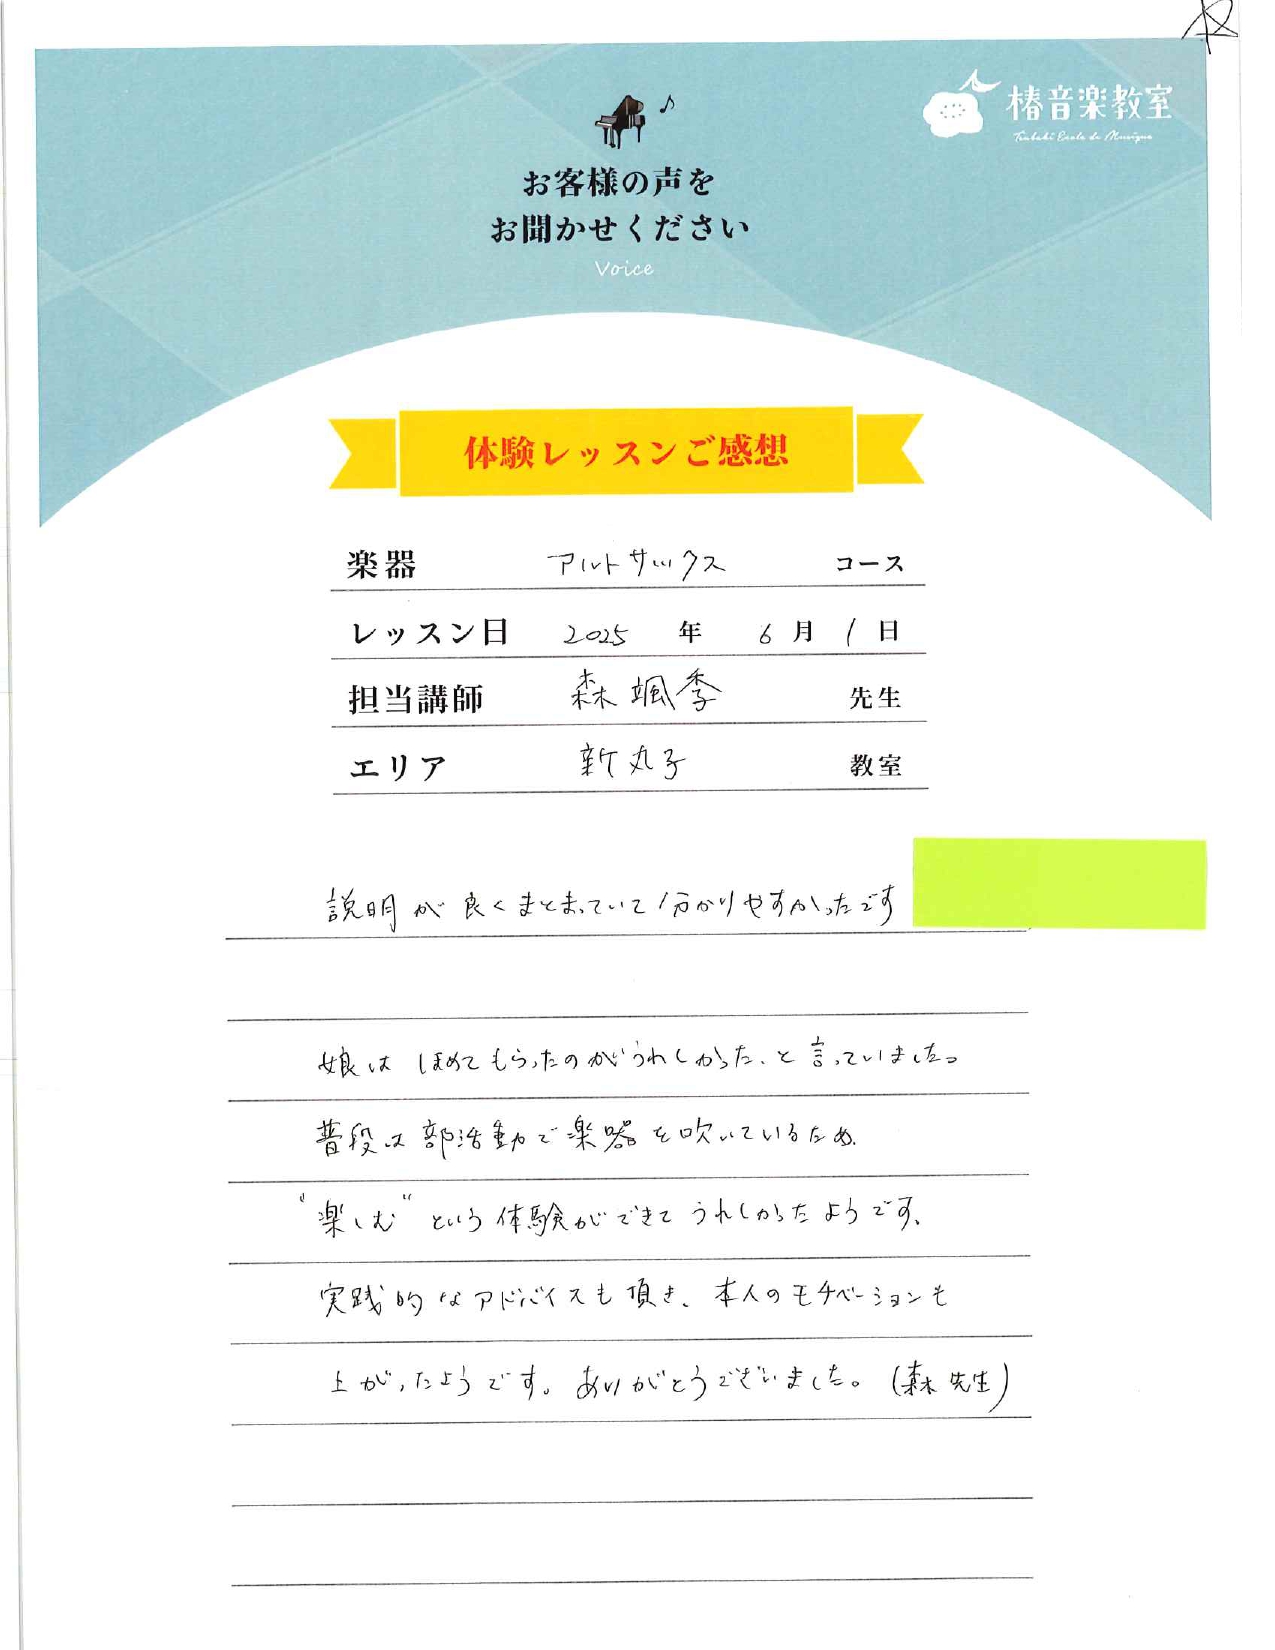 椿音楽教室
Tsubaki Ecole de Musique
お客様の声を
お聞かせください
Voice
体験レッスンご感想
楽器 アルトサックス コース
レッスン日 2025 年 6 月 1 日
担当講師 森 颯季 先生
エリア 新丸子 教室
説明が良くまとまっていて分かりやすかったです
娘はほめてもらったのがうれしかった、と言っていました。
普段は部活動で楽器を吹いているため、
"楽しむ"という体験ができてうれしかったようです。
実践的なアドバイスも頂き、本人のモチベーションも
上がったようです。ありがとうございました。(森先生)